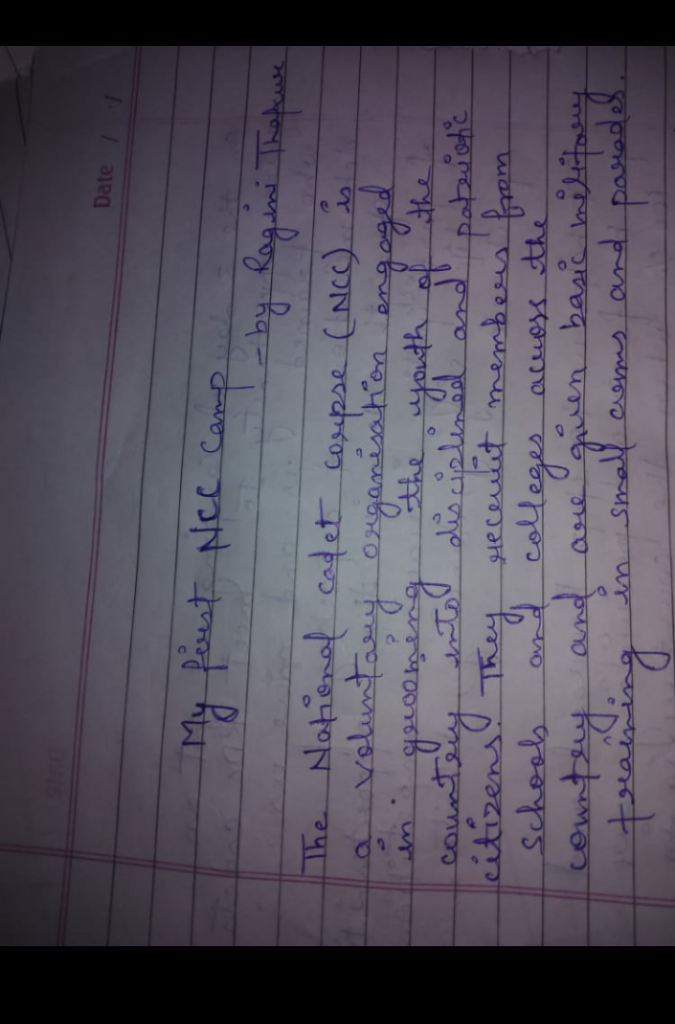 Date / /
My first NCC camp
- by Ragini Thakur
The National cadet corpse (NCC) is
a voluntary organisation engaged
in grooming the youth of the
country into disciplined and patriotic
citizens. They recruit members from
schools and colleges across the
country and are given basic military
training in small arms and parades.